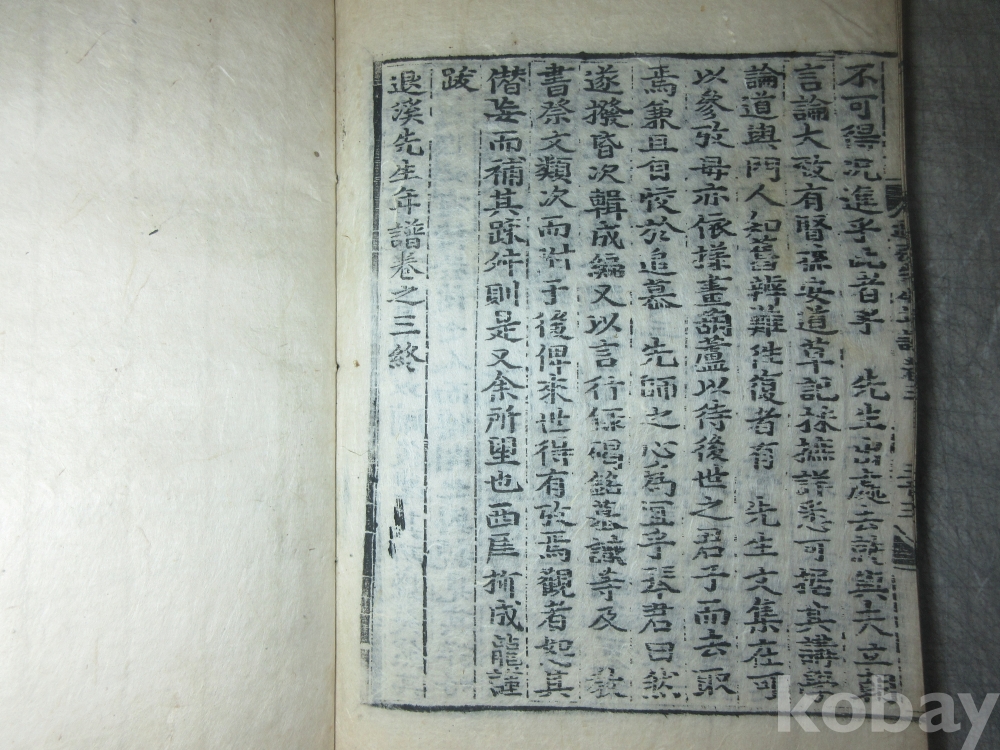 不可得況進乎此者乎　先生出處去就與夫立朝
言論大致有賢孫安道草記採摭詳悉可據其講學
論道與門人知舊辨難往復者有　先生文集在可
以參攷毋亦依樣畫葫蘆以待後世之君子而去取
焉兼且自效於追慕　先師之心爲宜乎琴君曰然
遂撥昏次輯成編又以言行錄碣銘墓識等及　敎
書祭文類次而附于後俾來世得有攷焉觀者恕其
僭妄而補其踈舛則是又余所望也西厓柳成龍謹
跋
退溪先生年譜卷之三終
kobay